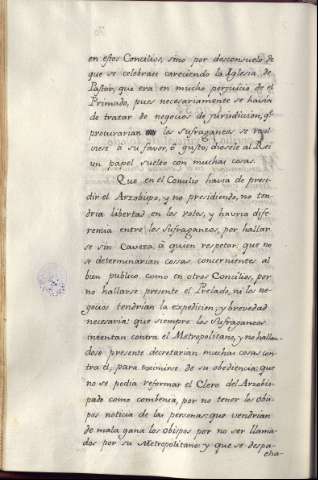 en estos Concilios, sino por desconsuelo, de
que se celebrase careciendo la Iglesia de
Pastor, que era en mucho perjuicio de el
Primado, pues necesariamente se havia
de tratar de negocios de jurisdiccion, qe.
procurarian los sufraganeos se rayol
viese à su favor, ò gusto, diosele al Rei
un papel suelto con muchas cosas.
Que en el Concilio havia de presi-
dir el Arzobispo, y no presidiendo, no ten-
dria libertad en los votos, y havria dife-
rencia entre los sufraganeos, por hallar
se sin Caveza, à quien respetar: que no
se determinarian cossas concernientes al
bien publico, como en otros Concilios, por
no hallarse presente el Prelado, ni los ne-
gocios tendrian la expedicion, y brevedad
necesaria: que siempre los sufraganeos
intentan contra el Metropolitano, y no hallan-
dose presente decretarian muchas cosas con-
tra el, para eximirse de su obediencia: que
no se podia reformar el Clero del Arzobis-
pado como combenia, por no tener los obis-
pos noticia de las personas: que vendrian
de mala gana los obispos por no ser llama-
dos por su Metropolitano: y que se despa-
cha-